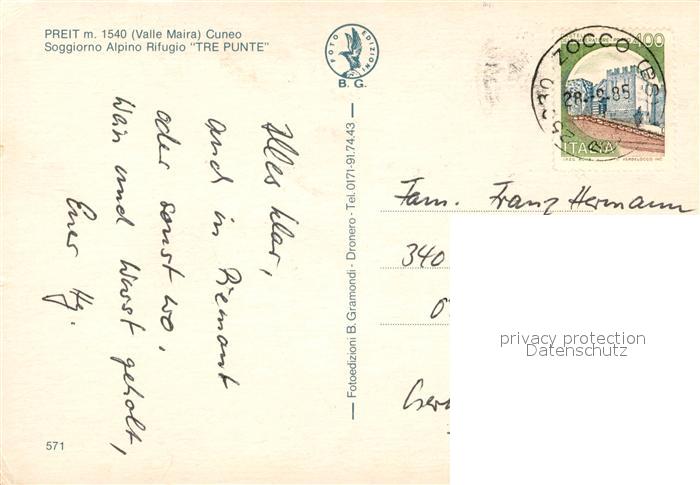 PREIT m. 1540 (Valle Maira) Cuneo
Soggiorno Alpino Rifugio "TRE PUNTE"
FOTO EDIZIONI
B. G.
Alles klar,
auch in Piemont
oder sonst wo,
Wein und Wurst geholt,
Euer Hg.
571
Fotoedizioni B. Gramondi - Dronero - Tel. 0171-91.74.43
400
ZOCCO (BS
28-9-85
ITALIA
Fam. Franz Hermann
340
privacy protection
Datenschutz